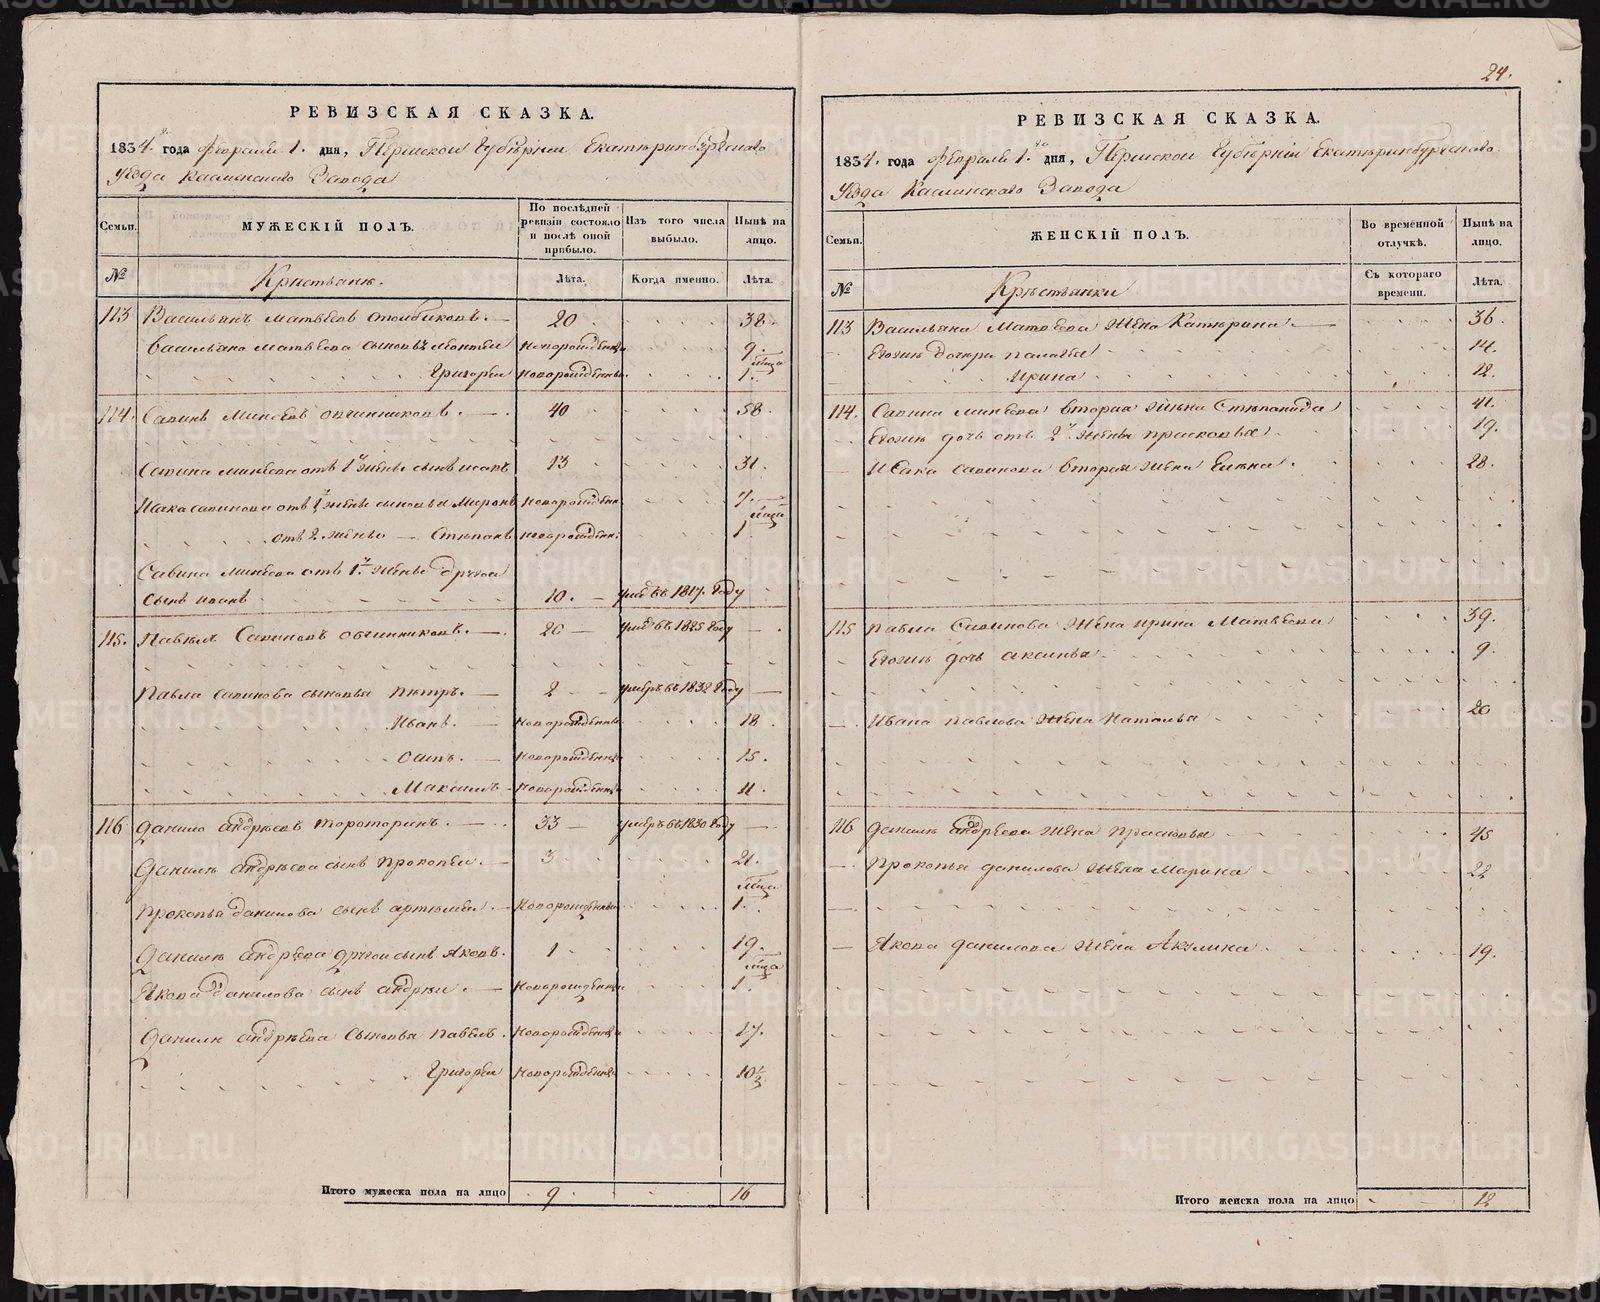 24.
РЕВИЗСКАЯ СКАЗКА.
1834. года февраля 1. дня, Пермской Губерніи Екатеринбургскаго
Уезда Каслинскаго Завода
Семьи.
МУЖЕСКІЙ ПОЛЪ.
По послѣдней ревизіи состояло и послѣ оной прибыло.
Изъ того числа выбыло.
Нынѣ на лицо.
№
Крестьяне.
Лѣта.
Когда именно.
Лѣта.
113 Васильянъ Матвеевъ 20 38.
Васильяна Матвеева сыновья новорожденны 9.
Григорей новорожденны. мца 1.
114. Савинъ Минеевъ овчинниковъ. 40 58.
Савина Минеева отъ 1й жены сынъ исакъ 13 31.
Исака савинова отъ 1й жены сыновья Миронъ новорожден. 7.
отъ 2. жены Степанъ новорожден. мца 1
Савина Минеева отъ 1й жены другой
сынъ иванъ 10. умре въ 1817. году
115. Павелъ Савиновъ овчинниковъ. 20 умре въ 1825 году
Павла савинова сыновья петръ. 2 умеръ въ 1832 году
Иванъ. новорожденны 18.
осипъ. новорожденны 15.
Максимъ новорожденны 11.
116 Данило андреевъ тороторинъ. 33 умеръ въ 1830 году
Данила андреева сынъ прокопей. 3 21.
Прокопья данилова сынъ артемей. новорожденны мца 1.
Данила андреева другой сынъ Яковъ. 1 19.
Якова данилова сынъ андрей. новорожденны мца 1.
Данила андреева сыновья павелъ. новорожденны 17.
Григорей новорожденны 10½
Итого мужеска пола на лицо 9. 16
РЕВИЗСКАЯ СКАЗКА.
1834. года февраля 1. дня, Пермской Губерніи Екатеринбургскаго
Уезда Каслинскаго Завода
Семьи.
ЖЕНСКІЙ ПОЛЪ.
Во временной отлучкѣ.
Нынѣ на лицо.
№
Крестьянки
Съ котораго времени.
Лѣта.
113 Васильяна Матвеева жена Катерина 36.
Егожъ дочери палагея 14.
Ирина 12.
114. Савина минеева вторая жена Степанида 41.
Егожъ дочь отъ 2й жены прасковья 19.
Исака савинова вторая жена Елена. 28.
115 павла Савинова жена ирина Матвеева 39.
Егожъ дочь аксинья 9.
Ивана павлова жена Наталья 20
116 данила андреева жена Прасковья 45
Прокопья данилова жена Марина 22
Якова данилова жена Акулина 19.
Итого женска пола на лицо 12
METRIKI.GASO-URAL.RU